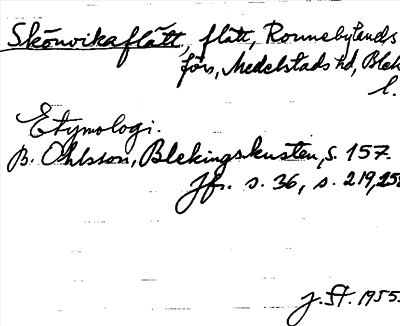 Skönvikaflått, flått, Ronnebylands
förs, Medelstads hd, Blek
l.
Etymologi.
B. Ohlsson, Blekingskusten, s. 157.
Jfr. s. 36, s. 219, 258
J. St. 1955.